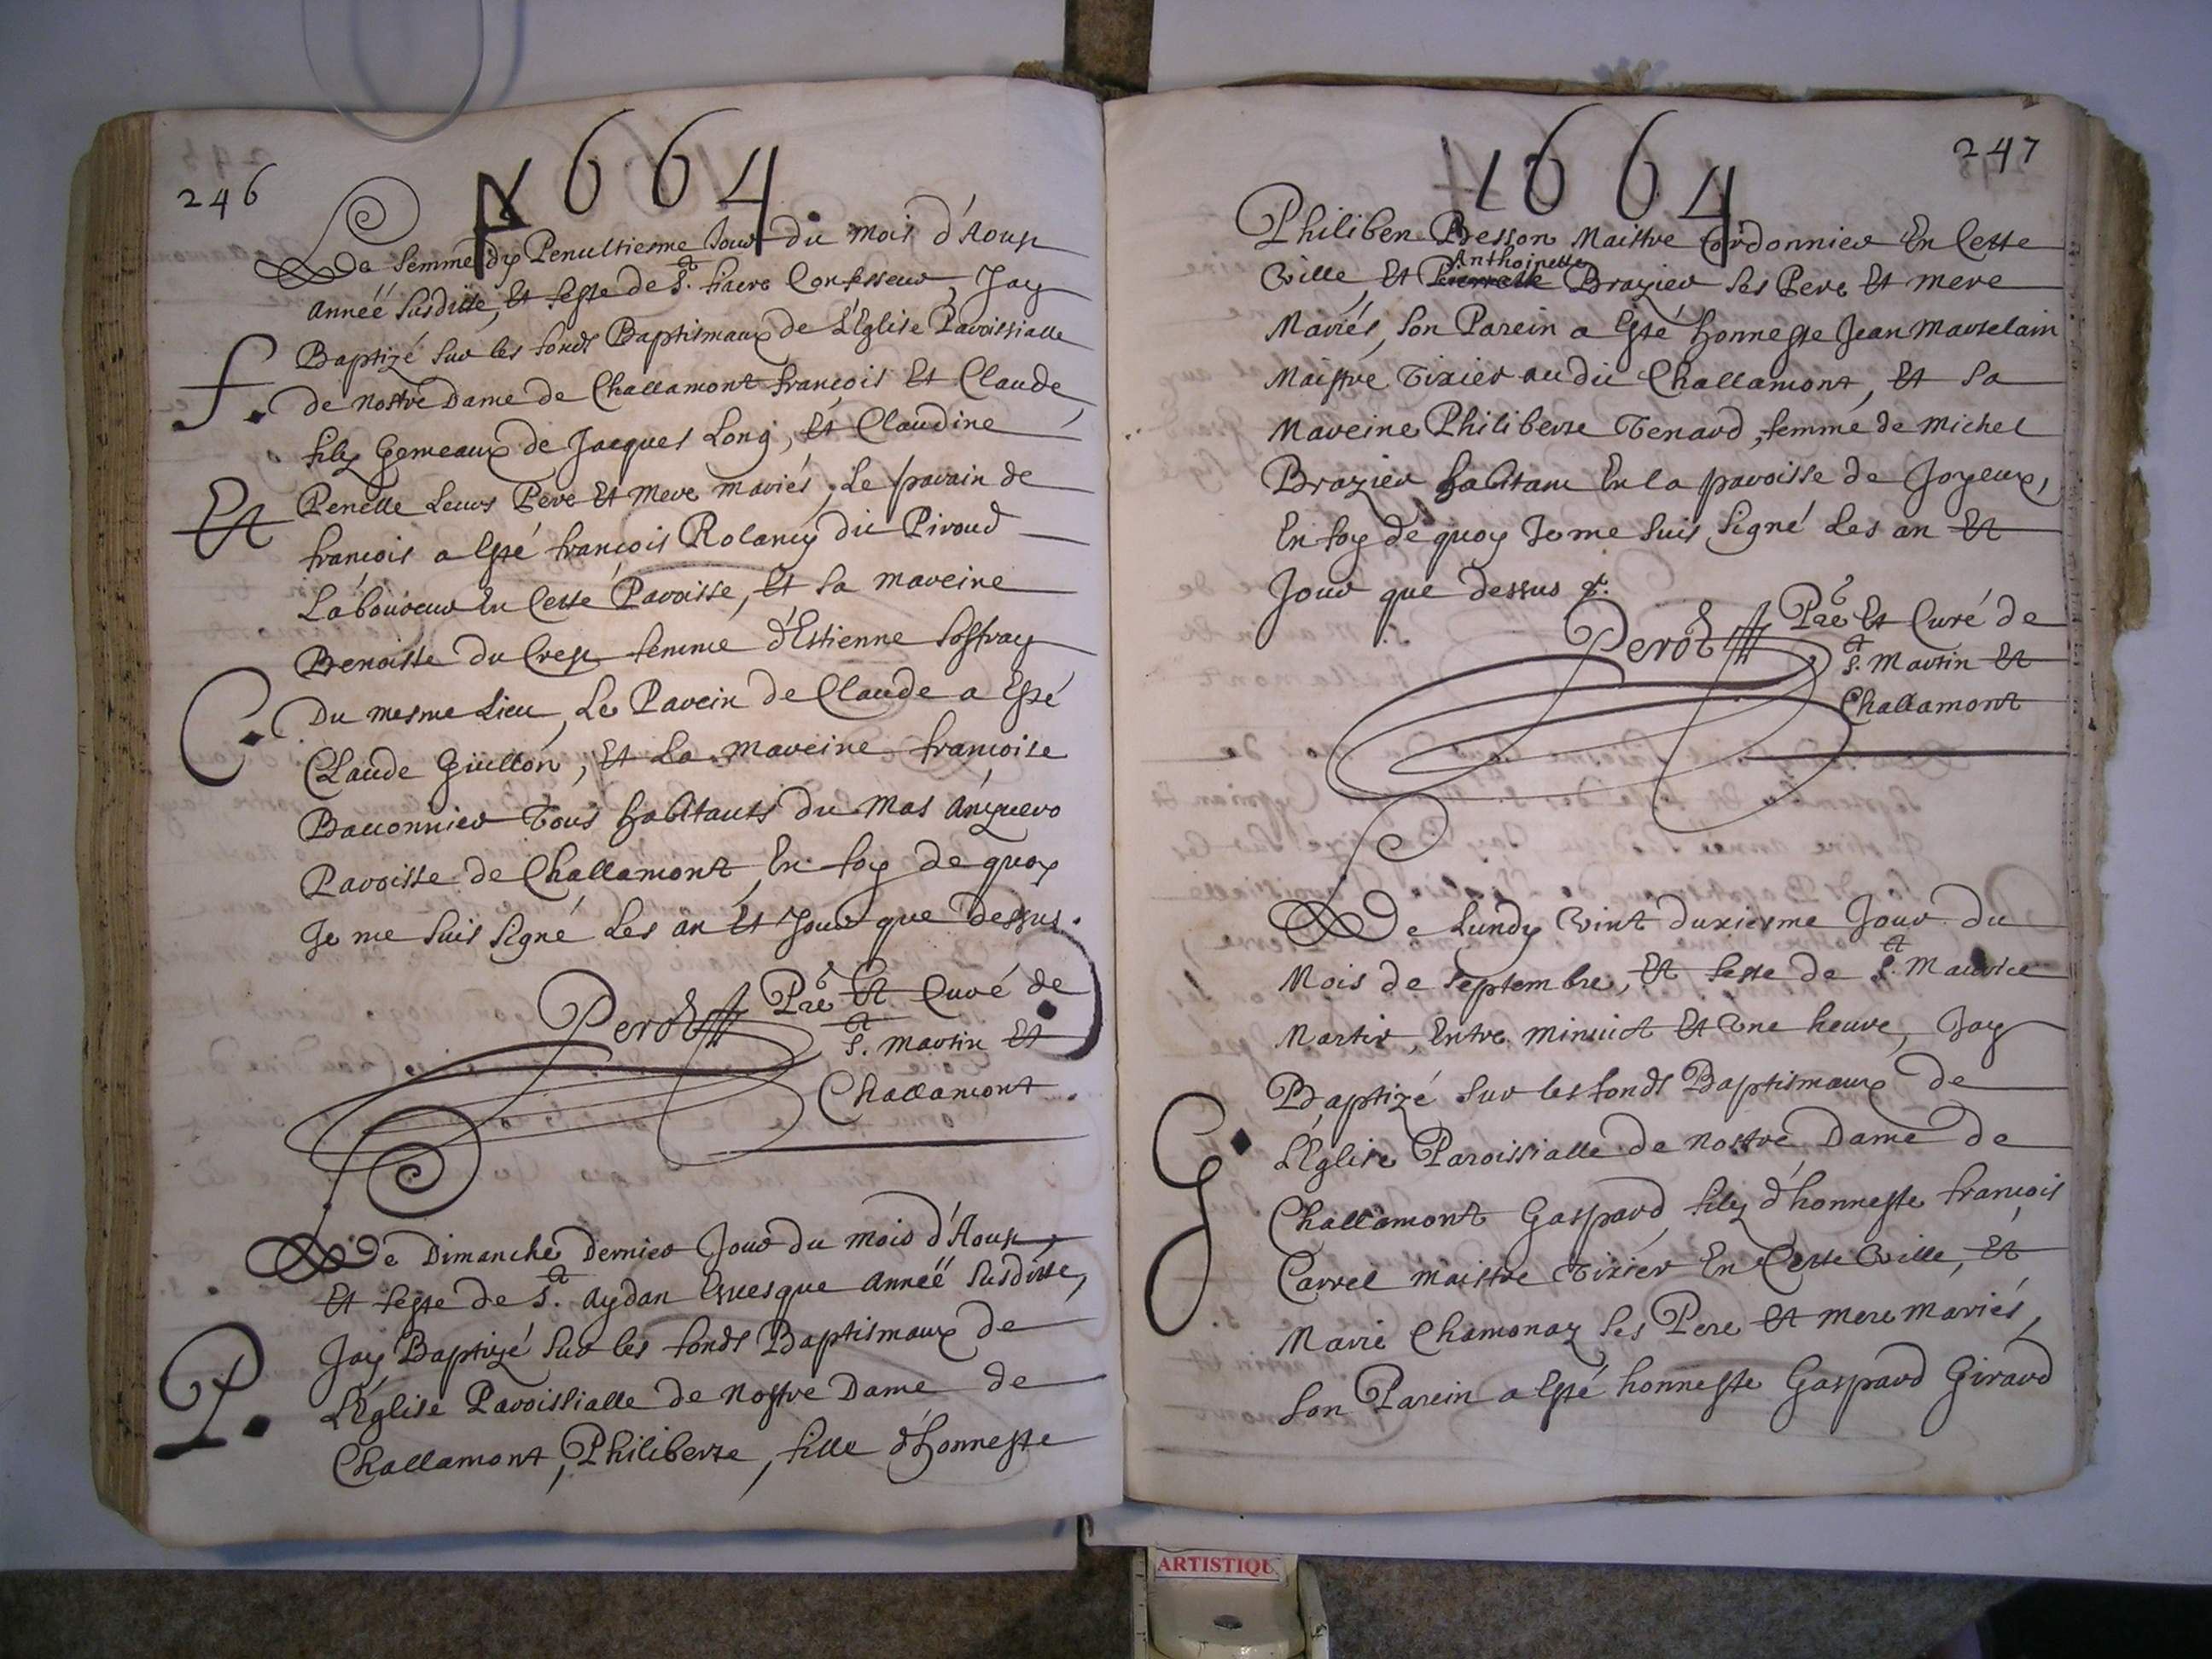 246
1664
De Semmedy Penultiesme Jour du mois d'Aoust
Annéë Susditte, Et feste de S.t fiacre Confesseur, Jay
Baptizé Sur les fonds Baptismaux de L'Eglise Paroissialle
f. de nostre Dame de Challamont françois Et Claude,
filz Gemeaux de Jacques Long, Et Claudine
Et Penelle Leurs Pere Et Mere mariés, Le parain de
françois a Esté françois Rolany dit Piroud
Laboureur En Cette Paroisse, Et Sa mareine
Benoiste du Crest femme d'Estienne Soffray
C. Du mesme Lieu, Le Parein de Claude a Esté
Claude Guillon, Et La mareine françoise
Bauonnier Tous habitants du Mas
Paroisse de Challamont, En foy de quoy
Je me Suis Signé Les an Et Jour que Dessus.
Perot Pre Et Curé de
S.t Martin Et
Challamont.
De Dimanche Dernier Jour du mois d'Aoust,
Et feste de S.t Aydan Euesque Annéë Susditte,
Jay Baptizé Sur les fonds Baptismaux de
P. L'Eglise Paroissialle de Nostre Dame de
Challamont, Philiberte, fille d'honneste
247
1664
Philibert Besson Maistre Cordonnier En Cette
Anthoinette
Ville, Et Pierrette Brazier Ses Pere Et mere
Mariés, Son Parein a Esté honneste Jean Martelain
Maistre Tixier audit Challamont, Et Sa
Mareine Philiberte Tenard, femme de Michel
Brazier habitant En la paroisse de Joyeux,
En foy de quoy Je me Suis Signé Les an Et
Jour que dessus
Perot Pre Et Curé de
S.t Martin Et
Challamont
De Lundy Vint duxiesme Jour du
Mois de Septembre, Et feste de S.t Maurice
Martir, Entre minuict Et Vne heure, Jay
Baptizé Sur les fonds Baptismaux de
G. L'Eglise Paroissialle de Nostre Dame de
Challamont Gaspard, filz d'honneste françois
Carrel maistre Tixier En Cette Ville, Et
Marie Chamonay Ses Pere Et mere mariés,
Son Parein a Esté honneste Gaspard Giraud
ARTISTIQU